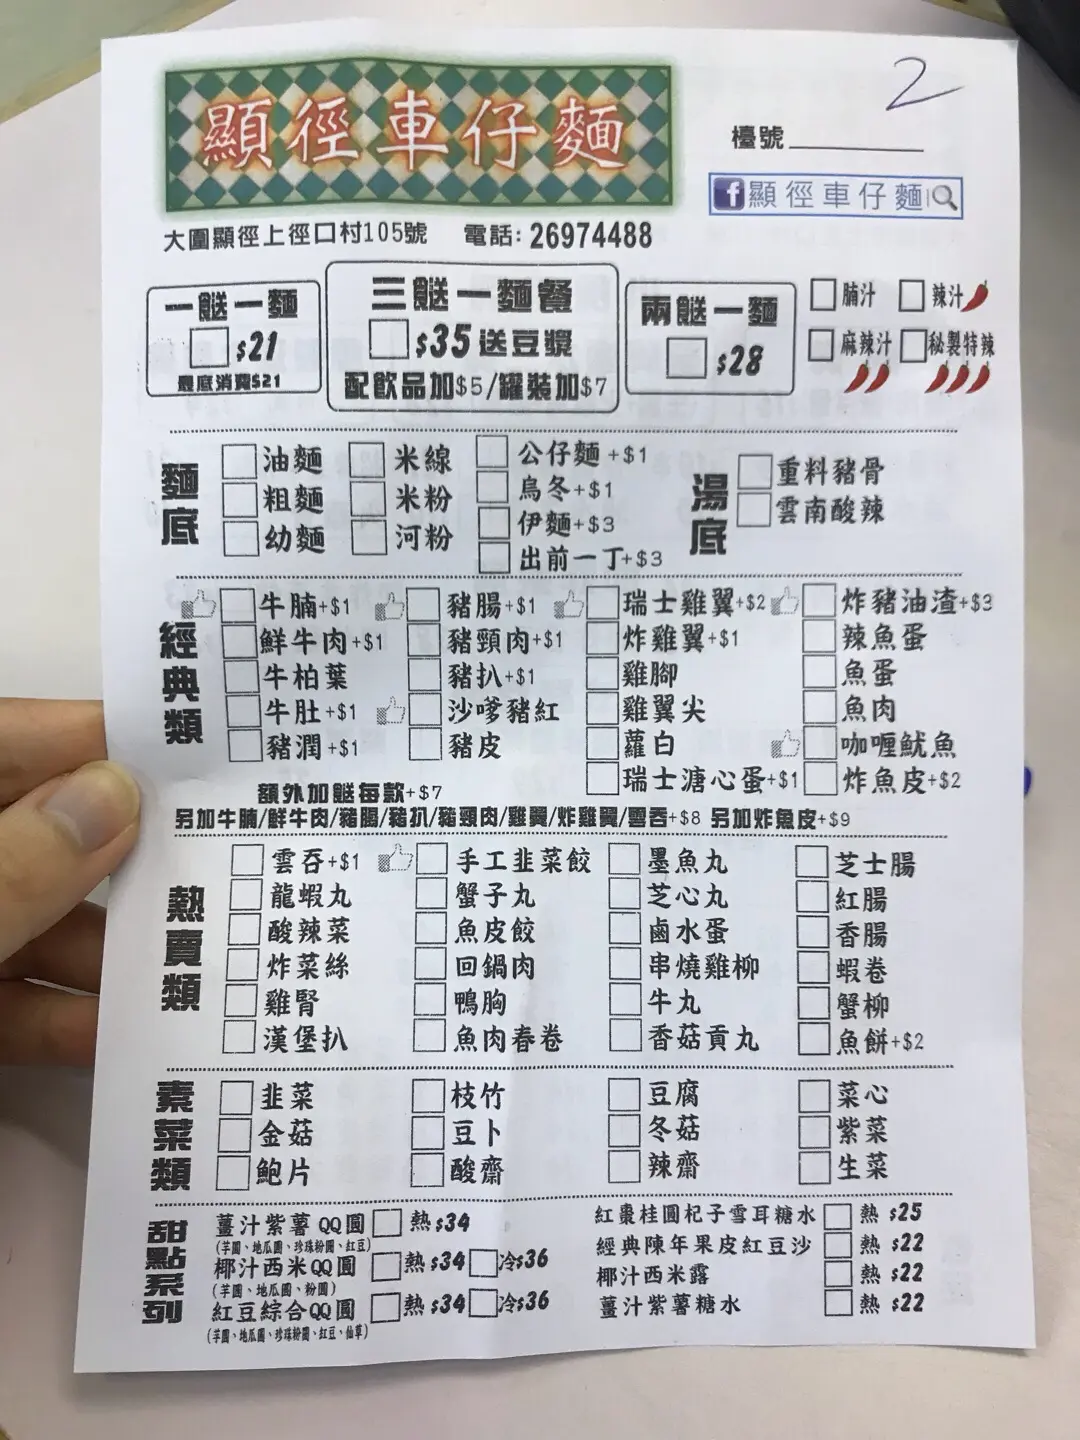 顯徑車仔麵
2
檯號
f 顯徑車仔麵
大圍顯徑上徑口村105號 電話: 26974488
一餸一麵
$21
最底消費$21
三餸一麵餐
$35送豆漿
配飲品加$5/罐裝加$7
兩餸一麵
$28
腩汁 辣汁
麻辣汁 秘製特辣
麵底
油麵 米線 公仔麵+$1
粗麵 米粉 烏冬+$1
幼麵 河粉 伊麵+$3
出前一丁+$3
湯底
重料豬骨
雲南酸辣
經典類
牛腩+$1 豬腸+$1 瑞士雞翼+$2 炸豬油渣+$3
鮮牛肉+$1 豬頸肉+$1 炸雞翼+$1 辣魚蛋
牛柏葉 豬扒+$1 雞腳 魚蛋
牛肚+$1 沙嗲豬紅 雞翼尖 魚肉
豬潤+$1 豬皮 蘿白 咖喱魷魚
瑞士溏心蛋+$1 炸魚皮+$2
額外加餸每款+$7
另加牛腩/鮮牛肉/豬腸/豬扒/豬頸肉/雞翼/炸雞翼/雲吞+$8 另加炸魚皮+$9
熱賣類
雲吞+$1 手工韭菜餃 墨魚丸 芝士腸
龍蝦丸 蟹子丸 芝心丸 紅腸
酸辣菜 魚皮餃 鹵水蛋 香腸
炸菜絲 回鍋肉 串燒雞柳 蝦卷
雞腎 鴨胸 牛丸 蟹柳
漢堡扒 魚肉春卷 香菇貢丸 魚餅+$2
素菜類
韭菜 枝竹 豆腐 菜心
金菇 豆卜 冬菇 紫菜
鮑片 酸齋 辣齋 生菜
甜點系列
薑汁紫薯QQ圓 熱$34
(芋圓、地瓜圓、珍珠粉圓、紅豆)
椰汁西米QQ圓 熱$34 冷$36
(芋圓、地瓜圓、粉圓)
紅豆綜合QQ圓 熱$34 冷$36
(芋圓、地瓜圓、珍珠粉圓、紅豆、仙草)
紅棗桂圓杞子雪耳糖水 熱 $25
經典陳年果皮紅豆沙 熱 $22
椰汁西米露 熱 $22
薑汁紫薯糖水 熱 $22